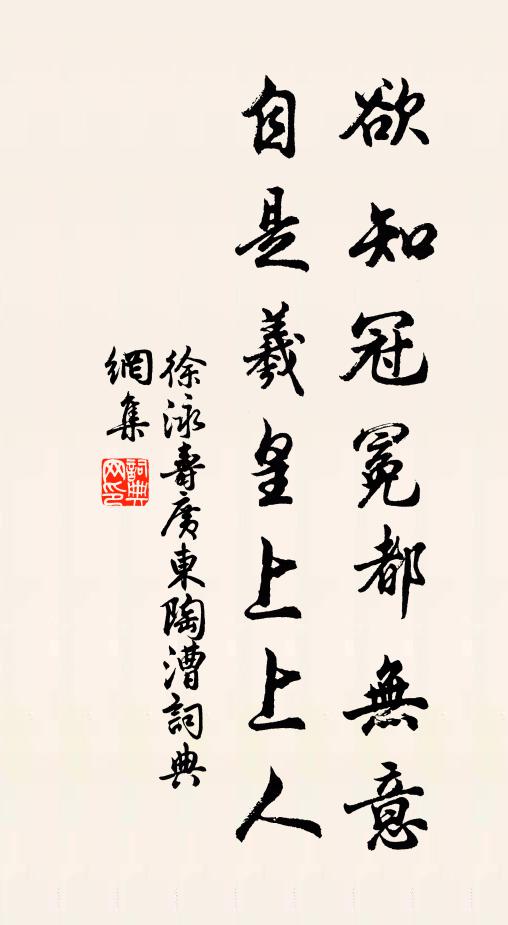 欲知冠冕都無意
自是羲皇上上人
徐泳壽廣東陶漕詞典
網集
詞典網印